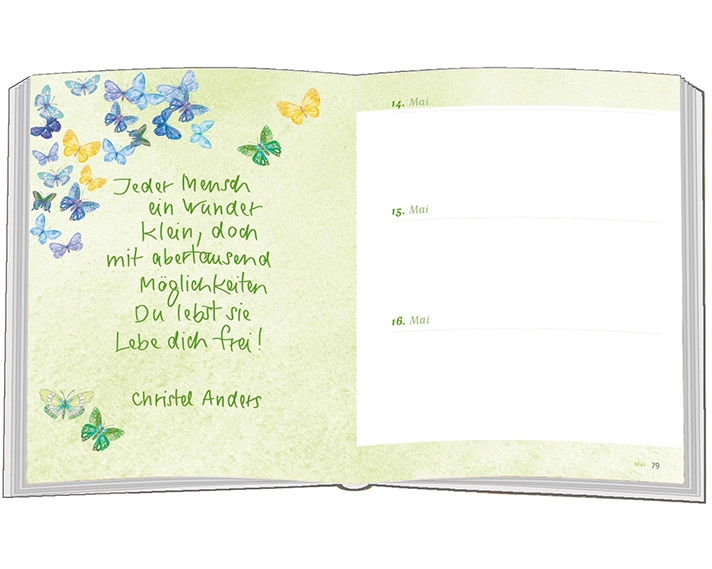 Jeder Mensch
ein Wunder
Klein, doch
mit abertausend
Möglichkeiten
Du lebst sie
Lebe dich frei!
Christel Anders
14. Mai
15. Mai
16. Mai
Mai 79